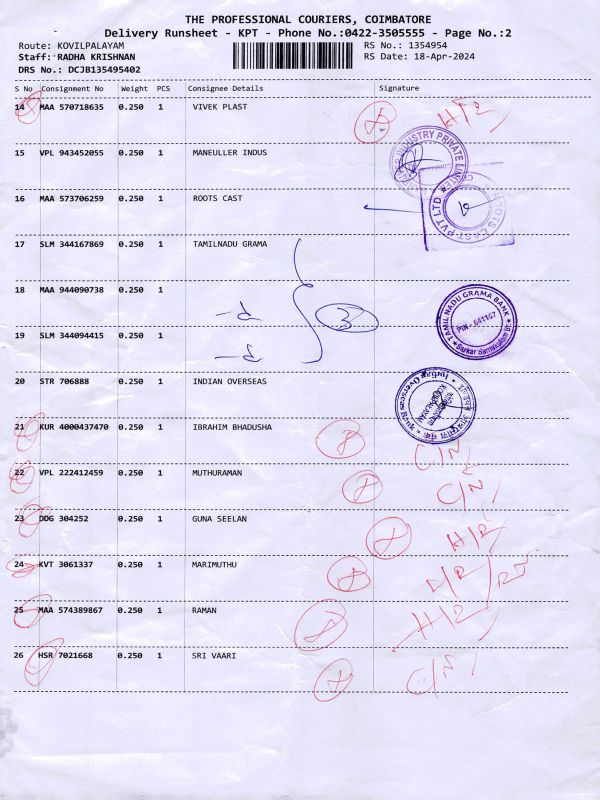 THE PROFESSIONAL COURIERS, COIMBATORE
Delivery Runsheet - KPT - Phone No.:0422-3505555 - Page No.:2
Route: KOVILPALAYAM RS No.: 1354954
Staff: RADHA KRISHNAN RS Date: 18-Apr-2024
DRS No.: DCJB135495402
S No Consignment No Weight PCS Consignee Details Signature
14 MAA 570718635 0.250 1 VIVEK PLAST H/R
15 VPL 943452055 0.250 1 MANEULLER INDUS
INDUSTRY PRIVATE LIMITED
16 MAA 573706259 0.250 1 ROOTS CAST
ROOTS CAST PVT LTD
17 SLM 344167869 0.250 1 TAMILNADU GRAMA
18 MAA 944090738 0.250 1
-d- 3
TAMIL NADU GRAMA BANK
PIN - 641107
Sarkar Samakulam Br.
19 SLM 344094415 0.250 1
-d-
20 STR 706888 0.250 1 INDIAN OVERSEAS
Indian Overseas Bank
21 KUR 4000437470 0.250 1 IBRAHIM BHADUSHA C/N
22 VPL 222412459 0.250 1 MUTHURAMAN C/N
23 DDG 304252 0.250 1 GUNA SEELAN H/R
24 KVT 3061337 0.250 1 MARIMUTHU
25 MAA 574389867 0.250 1 RAMAN H/R
26 HSR 7021668 0.250 1 SRI VAARI C/N